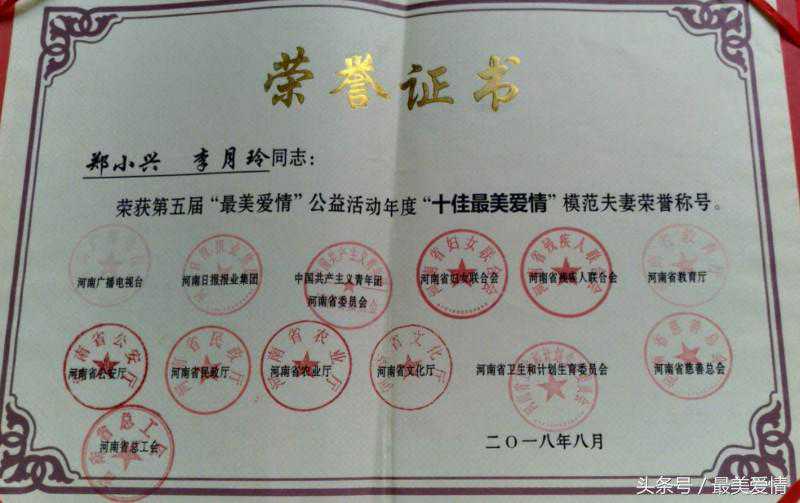 荣誉证书
郑小兴 李月玲同志：
荣获第五届“最美爱情”公益活动年度“十佳最美爱情”模范夫妻荣誉称号。
河南广播电视台 河南日报报业集团 中国共产主义青年团河南省委员会 河南省妇女联合会 河南省残疾人联合会 河南省教育厅
河南省公安厅 河南省民政厅 河南省农业厅 河南省文化厅 河南省卫生和计划生育委员会 河南省慈善总会
河南省总工会
二〇一八年八月
头条号／最美爱情